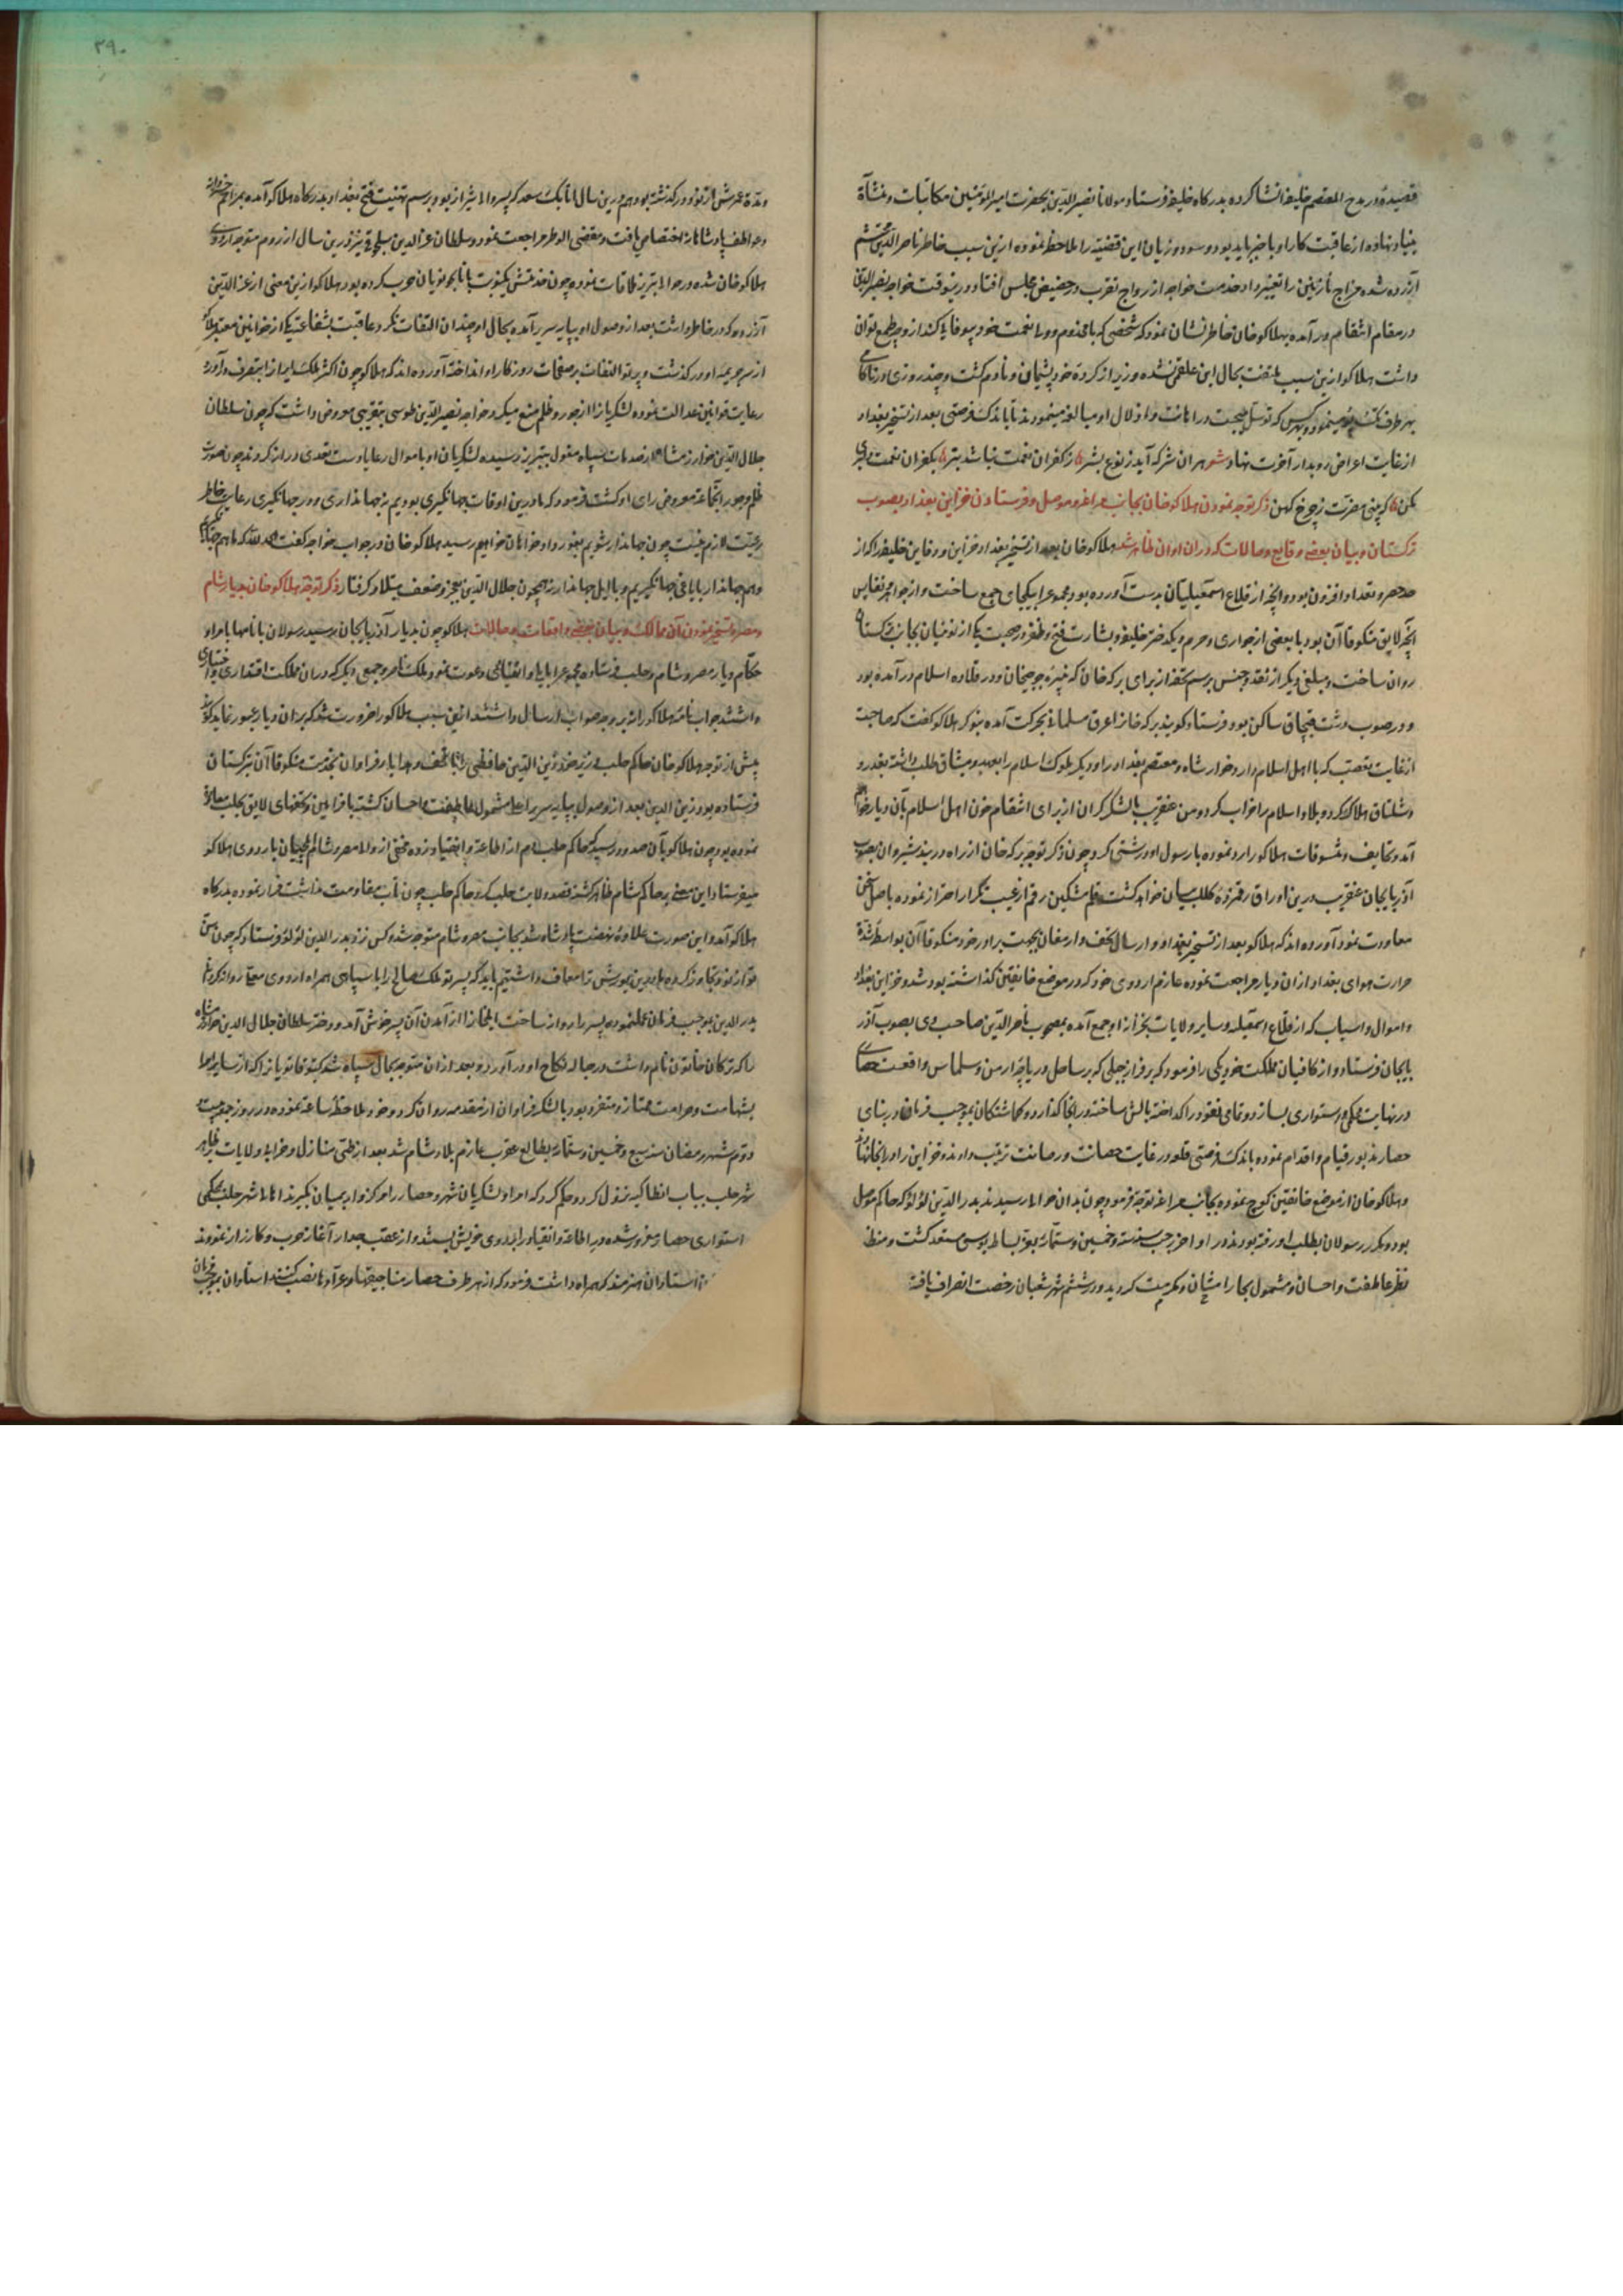 قصیده در مدح المعتصم خلیفه انشا کرده بدرگاه خلیفه فرستاد و مولانا نصیر الدین بحضرت امیر المومنین مکاتبات و منشآت
بنیاد نهاده از عاقبت کار او با خبر باید بود و سود و زیان این قضیه را ملاحظه نموده ازین سبب خاطر ناصر الدین محتشم
آزرده شده مزاج نازنین را تغییر داد و خدمت خواجه از رواج تقرب در حضیض مجلس افتاد و درینوقت خواجه نصیر الدین
در مقام انتقام در آمده بهلاکو خان خاطر نشان نمود که شخصی که با مخدوم و ولی نعمت خود بیوفایی کند از وچه طمع توان
داشت هلاکو ازین سبب ملتفت بحال ابن علقمی نشده وزیر از کرده خود پشیمان و نادم گشت و چند روزی در ناکامی
بهر طرف میشتافت و بهر کس که توسل میجست در اهانت و اذلال او مبالغه مینمودند تا باندک فرصتی بعد از تسخیر بغداد
از غایت اعراض رو بدار آخرت نهاد شعر هر آن شر که آید ز نوع بشر ز کفران نعمت نباشد بتر بکفران نعمت دلیری
مکن که بینی مضرت ز چرخ کهن ذکر توجه نمودن هلاکو خان بجانب مراغه و موصل و فرستادن خزاین بغداد بصوب
ترکستان و بیان بعضی وقایع و حالات که در آن اوان ظاهر شد هلاکو خان بعد از تسخیر بغداد و خزاین و دفاین خلیفه را که از
حد حصر و تعداد افزون بود و آنچه از قلاع اسمعیلیان بدست آورده بود مجموع را بیکجای جمع ساخت و از جواهر نفایس
آنچه لایق منکوقاآن بود با بعضی از جواری و حرم و یکدختر خلیفه و بشارت فتح و ظفر در صحبت یکی از نوئینان بجانب ترکستان
روان ساخت و مبلغی دیگر از نقد و جنس برسم تحفه از برای برکه خان که نبیره جوجیخان و در قلاده اسلام در آمده بود
و در صوب دشت قبچاق ساکن بود فرستاد گویند برکه خان از عرق مسلمانی بحرکت آمده بنوکر هلاکو گفت که صاحبت
از غایت تعصب که با اهل اسلام دارد خوارزمشاه و معتصم بغداد را و دیگر ملوک اسلام را بعهد و میثاق طلب داشته بغدر و
شلتاق هلاک کرد و بلاد اسلام را خراب کرد و من عنقریب با لشکر گران از برای انتقام خون اهل اسلام بآن دیار خواهم
آمد و تحایف و تنسوقات هلاکو را رد نموده با رسول او درشتی کرد و چون ذکر توجه برکه خان از راه دربند شیروان بصوب
آذربایجان عنقریب درین اوراق رقمزده کلک بیان خواهد گشت قلم مشکین رقم از عیب تکرار احتراز نموده باصل سخن
معاودت نمود آورده اند که هلاکو بعد از تسخیر بغداد و ارسال تحف و ارمغان بجهت برادر خود منکوقاآن بواسطه شدت
حرارت هوای بغداد از آن دیار مراجعت نموده عازم اردوی خود که در موضع خانقین گذاشته بود شد و خزاین بغداد
و اموال و اسباب که از قلاع اسمعیلیه و سایر ولایات بخزانه او جمع آمده بمصحوب ناصر الدین صاحب ری بصوب آذر
بایجان فرستاد و از کافیان مملکت خود یکی را فرمود که بر فراز جبلی که بر ساحل دریاچه ارمن و سلماس واقعست حصاری
در نهایت محکمی و استواری بسازد و تمامی نقود را گداخته بالش ساخته در آنجا گذارد و گماشتگان بموجب فرمان در بنای
حصار مذبور قیام و اقدام نموده باندک فرصتی قلعه در غایت حصانت و رصانت ترتیب دادند و خزاین را در آنجا نهادند
و هلاکو خان از موضع خانقین کوچ نموده بجانب مراغه توجه فرمود چون بدان حوالی رسید ند بدر الدین لؤلؤ که حاکم موصل
بود و مکرر رسولان بطلب او رفته بودند در اواخر رجب سنه سته و خمسین و ستمایه بعز بساط بوسی مستعد گشت و منظور
نظر عاطفت و احسان و مشمول بحار امتنان و مکرمت گردید و در ششم شهر شعبان رخصت انصراف یافت
۳۹۰
و مدة عمرش از نود در گذشته بود و هم درین سال اتابک سعد که پسر والی شیراز بود برسم تهنیت فتح بغداد بدرگاه هلاکو آمده بمراحم خسروانه
و عواطف پادشاهانه اختصاص یافت و مقضی الوطر مراجعت نمود و سلطان عز الدین سلجوقی نیز درین سال از روم متوجه اردوی
هلاکو خان شده در حوالی تبریز ملاقات نموده چون خدمتش یکنوبت با بایجو نویان حرب کرده بود هلاکو ازین معنی از عز الدین
آزردگی در خاطر داشت بعد از وصول او بپایه سریر آمده بحال او چندان التفات نکرد و عاقبت بشفاعت یکی از خواتین معتبر هلاکو
از سر جریمه او در گذشت و پرتو التفات بر صفحات روزگار او انداخته آورده اند که هلاکو چون اکثر ملک ایران را بتصرف در آورد
رعایت قوانین عدالت نموده لشکریان را از جور و ظلم منع میکرد و خواجه نصیر الدین طوسی بتقریبی معروض داشت که چون سلطان
جلال الدین خوارزمشاه از صدمات سپاه مغول بتبریز رسیده لشکریان او باموال رعایا دست تعدی دراز کردند چون صورت
ظلم و جور آنجماعت معروض رای او گشت فرمود که ما درین اوقات جهانگیری بودیم نه جهانداری و در جهانگیری رعایت خاطر
رعیت لازم نیست چون جهاندار شویم بغور داد خواهان خواهیم رسید هلاکو خان در جواب خواجه گفت الحمد لله که ما هم جهانگیریم
و هم جهاندار با یاغی جهانگیریم و با ایل جهاندار نه همچون جلال الدین بعجز و ضعف مبتلا و گرفتار ذکر توجه هلاکو خان بدیار شام
و مصر و تسخیر نمودن آن ممالک و بیان بعضی واقعات و حالات هلاکو چون بدیار آذربایجان رسید رسولان با نامها بامرا و
حکام دیار مصر و شام و حلب فرستاده مجموع را بایلی و انقیاد دعوت نمود و ملک ناصر و جمعی دیگر که در آن مملکت اقتداری و اختیاری
داشتند جواب نامه هلاکو را نه بر وجه صواب ارسال داشتند ازین سبب هلاکو را ضرورت شد که بر آن دیار عبور نماید گویند
پیش از توجه هلاکو خان حاکم حلب وزیر خود زین الدین حافظی را با تحف و هدایا فراوان بخدمت منکوقاآن بترکستان
فرستاده بود زین الدین بعد از وصول بپایه سریر اعلی مشمول عاطفت و احسان گشته با فرامین و تحفهای لایق بحلب معاودت
نموده بود چون هلاکو بآن حدود رسید حاکم حلب دم از اطاعت و انقیاد زده مخفی از والی مصر و شام ایلچیان باردوی هلاکو
میفرستاد این معنی بر حاکم شام ظاهر گشته قصد ولایت حلب کرد و حاکم حلب چون تاب مقاومت نداشت فرار نموده بدرگاه
هلاکو آمد و این صورت علاوه نهضت پادشاه شد بجانب مصر و شام متوجه شد و کس نزد بدر الدین لؤلؤ فرستاد که چون سن
تو از نود تجاوز کرده ما درین یورش ترا معاف داشتیم باید که پسر تو ملک صالح را با سپاهی همراه اردوی معلی روانه گردانی
بدر الدین بموجب فرمان عمل نموده پسر را روانه ساخت ایلخان را از آمدن آن پسر خوش آمد و دختر سلطان جلال الدین خوارزمشاه
را که ترکان خاتون نام داشت در حباله نکاح او در آورد و بعد از آن متوجه بحال سپاه شد کیتوقا نویان را که از سایر امرا
بشهامت و صرامت ممتاز و متفرد بود با لشکر فراوان از مقدمه روان کرد و خود ملاحظه ساعت نموده در روز جمعه بیست
و دوم شهر رمضان سنه سبع و خمسین و ستمایه بطالع عقرب عازم بلاد شام شد بعد از طی منازل و خرابی ولایات بظاهر
شهر حلب بباب انطاکیه نزول کرد و حکم کرد که امرا و لشکریان شهر و حصار را مرکز وار بمیان بگیرند اهالی شهر حلب بمحکمی
استواری حصار مغرور شده در اطاعت و انقیاد را بر روی خویش ببستند و از عقب جدار آغاز حرب و کارزار نمودند
استادان هنرمند که همراه داشت فرمود که از هر طرف حصار مناجیقها و عرادها نصب کنند استادان بموجب فرمان